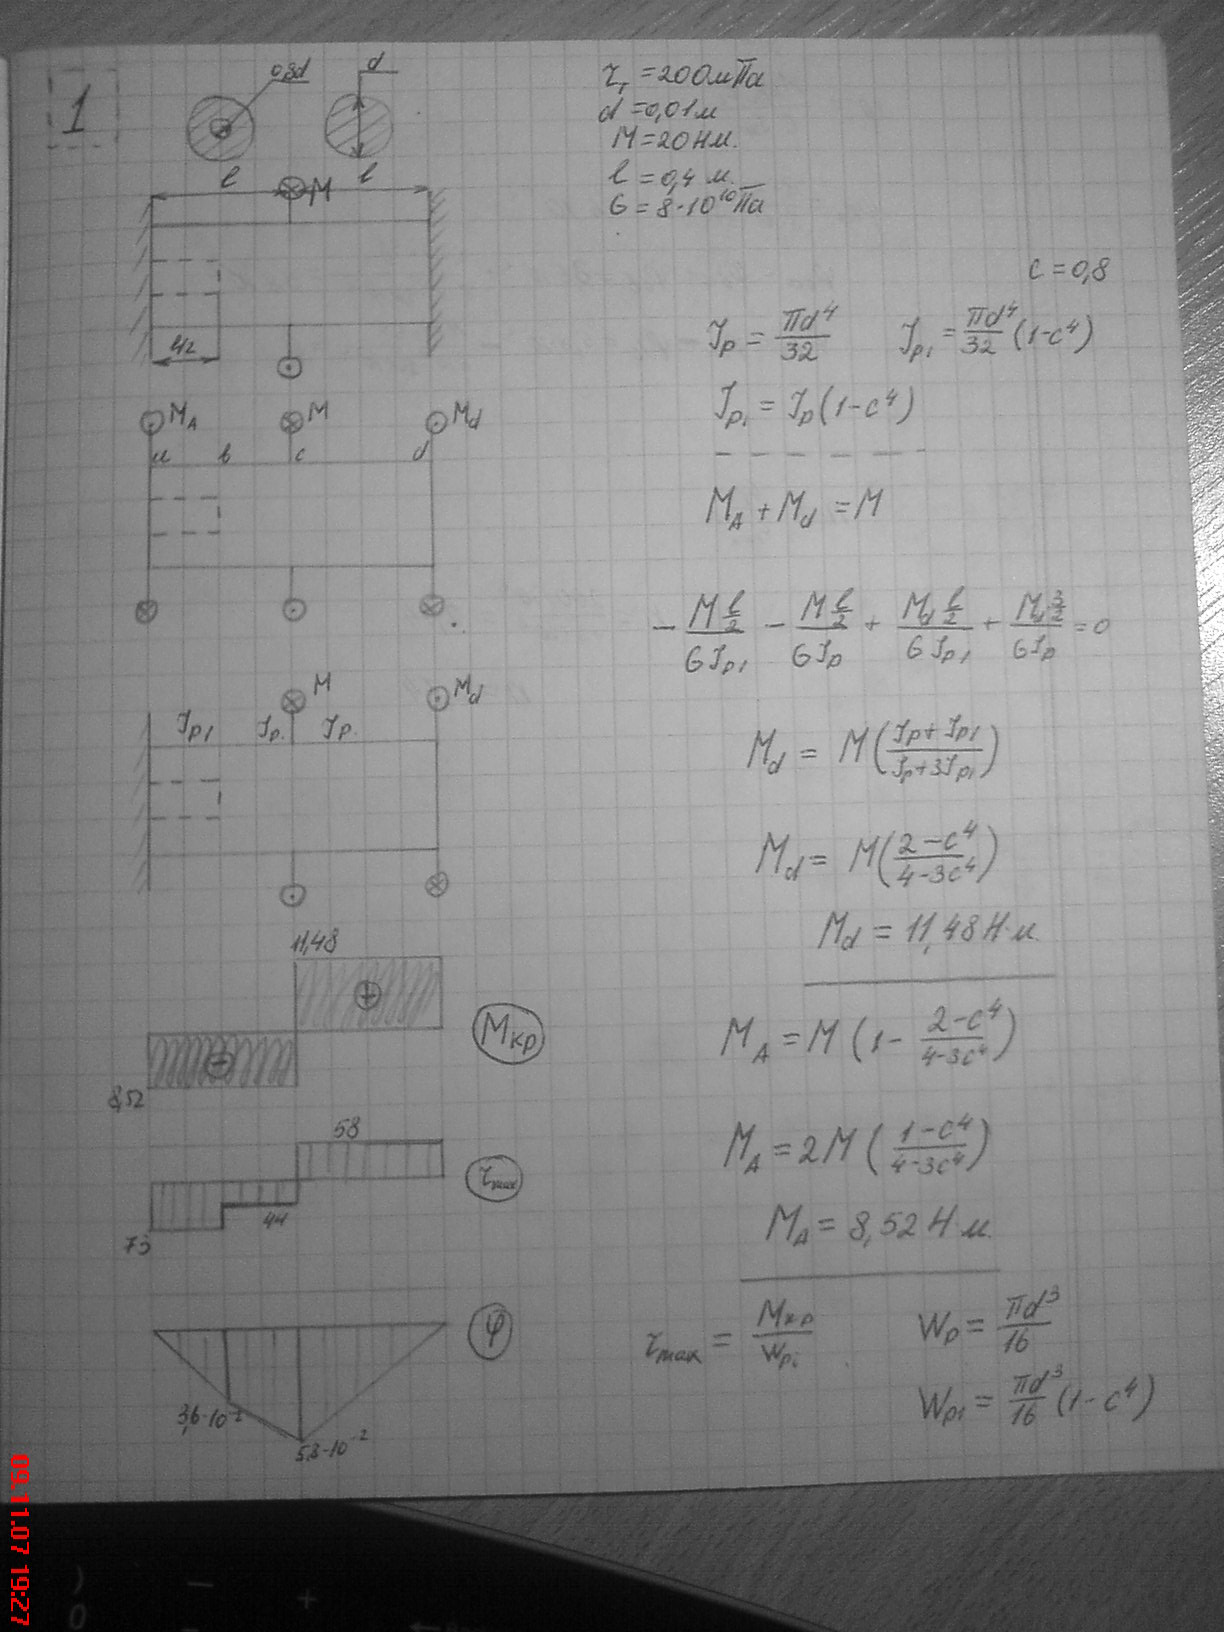 1
0,8d
d
τт = 200 мПа
d = 0,01 м
M = 20 Нм.
l = 0,4 м.
G = 8·10¹⁰ Па
l
l
M
l/2
c = 0,8
Jp = πd⁴/32
Jp₁ = πd⁴/32 (1-c⁴)
Jp₁ = Jp(1-c⁴)
M_A
M
M_d
a
b
c
d
M_A + M_d = M
- M l/2 / GJp₁ - M l/2 / GJp + M_d l/2 / GJp₁ + M_d 3/2 / GJp = 0
M
M_d
Jp₁
Jp.
Jp.
M_d = M((Jp + Jp₁)/(Jp + 3Jp₁))
M_d = M((2-c⁴)/(4-3c⁴))
M_d = 11,48 Н·м.
11,48
+
-
8,52
Mкр
M_A = M(1 - (2-c⁴)/(4-3c⁴))
58
44
73
τmax
M_A = 2M((1-c⁴)/(4-3c⁴))
M_A = 8,52 Н·м.
φ
3,6·10⁻²
5,8·10⁻²
τmax = Mкр/Wpᵢ
Wp = πd³/16
Wp₁ = πd³/16 (1-c⁴)
09.11.07 19:27